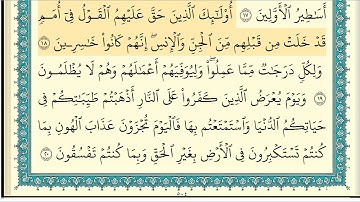 أَسَٰطِيرُ ٱلْأَوَّلِينَ ١٧ أُو۟لَٰٓئِكَ ٱلَّذِينَ حَقَّ عَلَيْهِمُ ٱلْقَوْلُ فِىٓ أُمَمٍ
قَدْ خَلَتْ مِن قَبْلِهِم مِّنَ ٱلْجِنِّ وَٱلْإِنسِ إِنَّهُمْ كَانُوا۟ خَٰسِرِينَ ١٨
وَلِكُلٍّ دَرَجَٰتٌ مِّمَّا عَمِلُوا۟ وَلِيُوَفِّيَهُمْ أَعْمَٰلَهُمْ وَهُمْ لَا يُظْلَمُونَ
١٩ وَيَوْمَ يُعْرَضُ ٱلَّذِينَ كَفَرُوا۟ عَلَى ٱلنَّارِ أَذْهَبْتُمْ طَيِّبَٰتِكُمْ فِى
حَيَاتِكُمُ ٱلدُّنْيَا وَٱسْتَمْتَعْتُم بِهَا فَٱلْيَوْمَ تُجْزَوْنَ عَذَابَ ٱلْهُونِ بِمَا
كُنتُمْ تَسْتَكْبِرُونَ فِى ٱلْأَرْضِ بِغَيْرِ ٱلْحَقِّ وَبِمَا كُنتُمْ تَفْسُقُونَ ٢٠